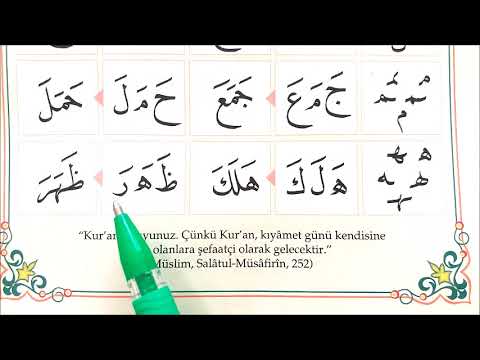 مـ ـمـ ـم م جَ مَ عَ جَمَعَ حَ مَ لَ حَمَلَ
هـ ـهـ ـه ه هَ لَ كَ هَلَكَ ظَ هَ رَ ظَهَرَ
“Kur’an Çünkü Kur’an, kıyâmet günü kendisine
olanlara şefaatçi olarak gelecektir.”
Müslim, Salâtul-Müsâfirîn, 252)